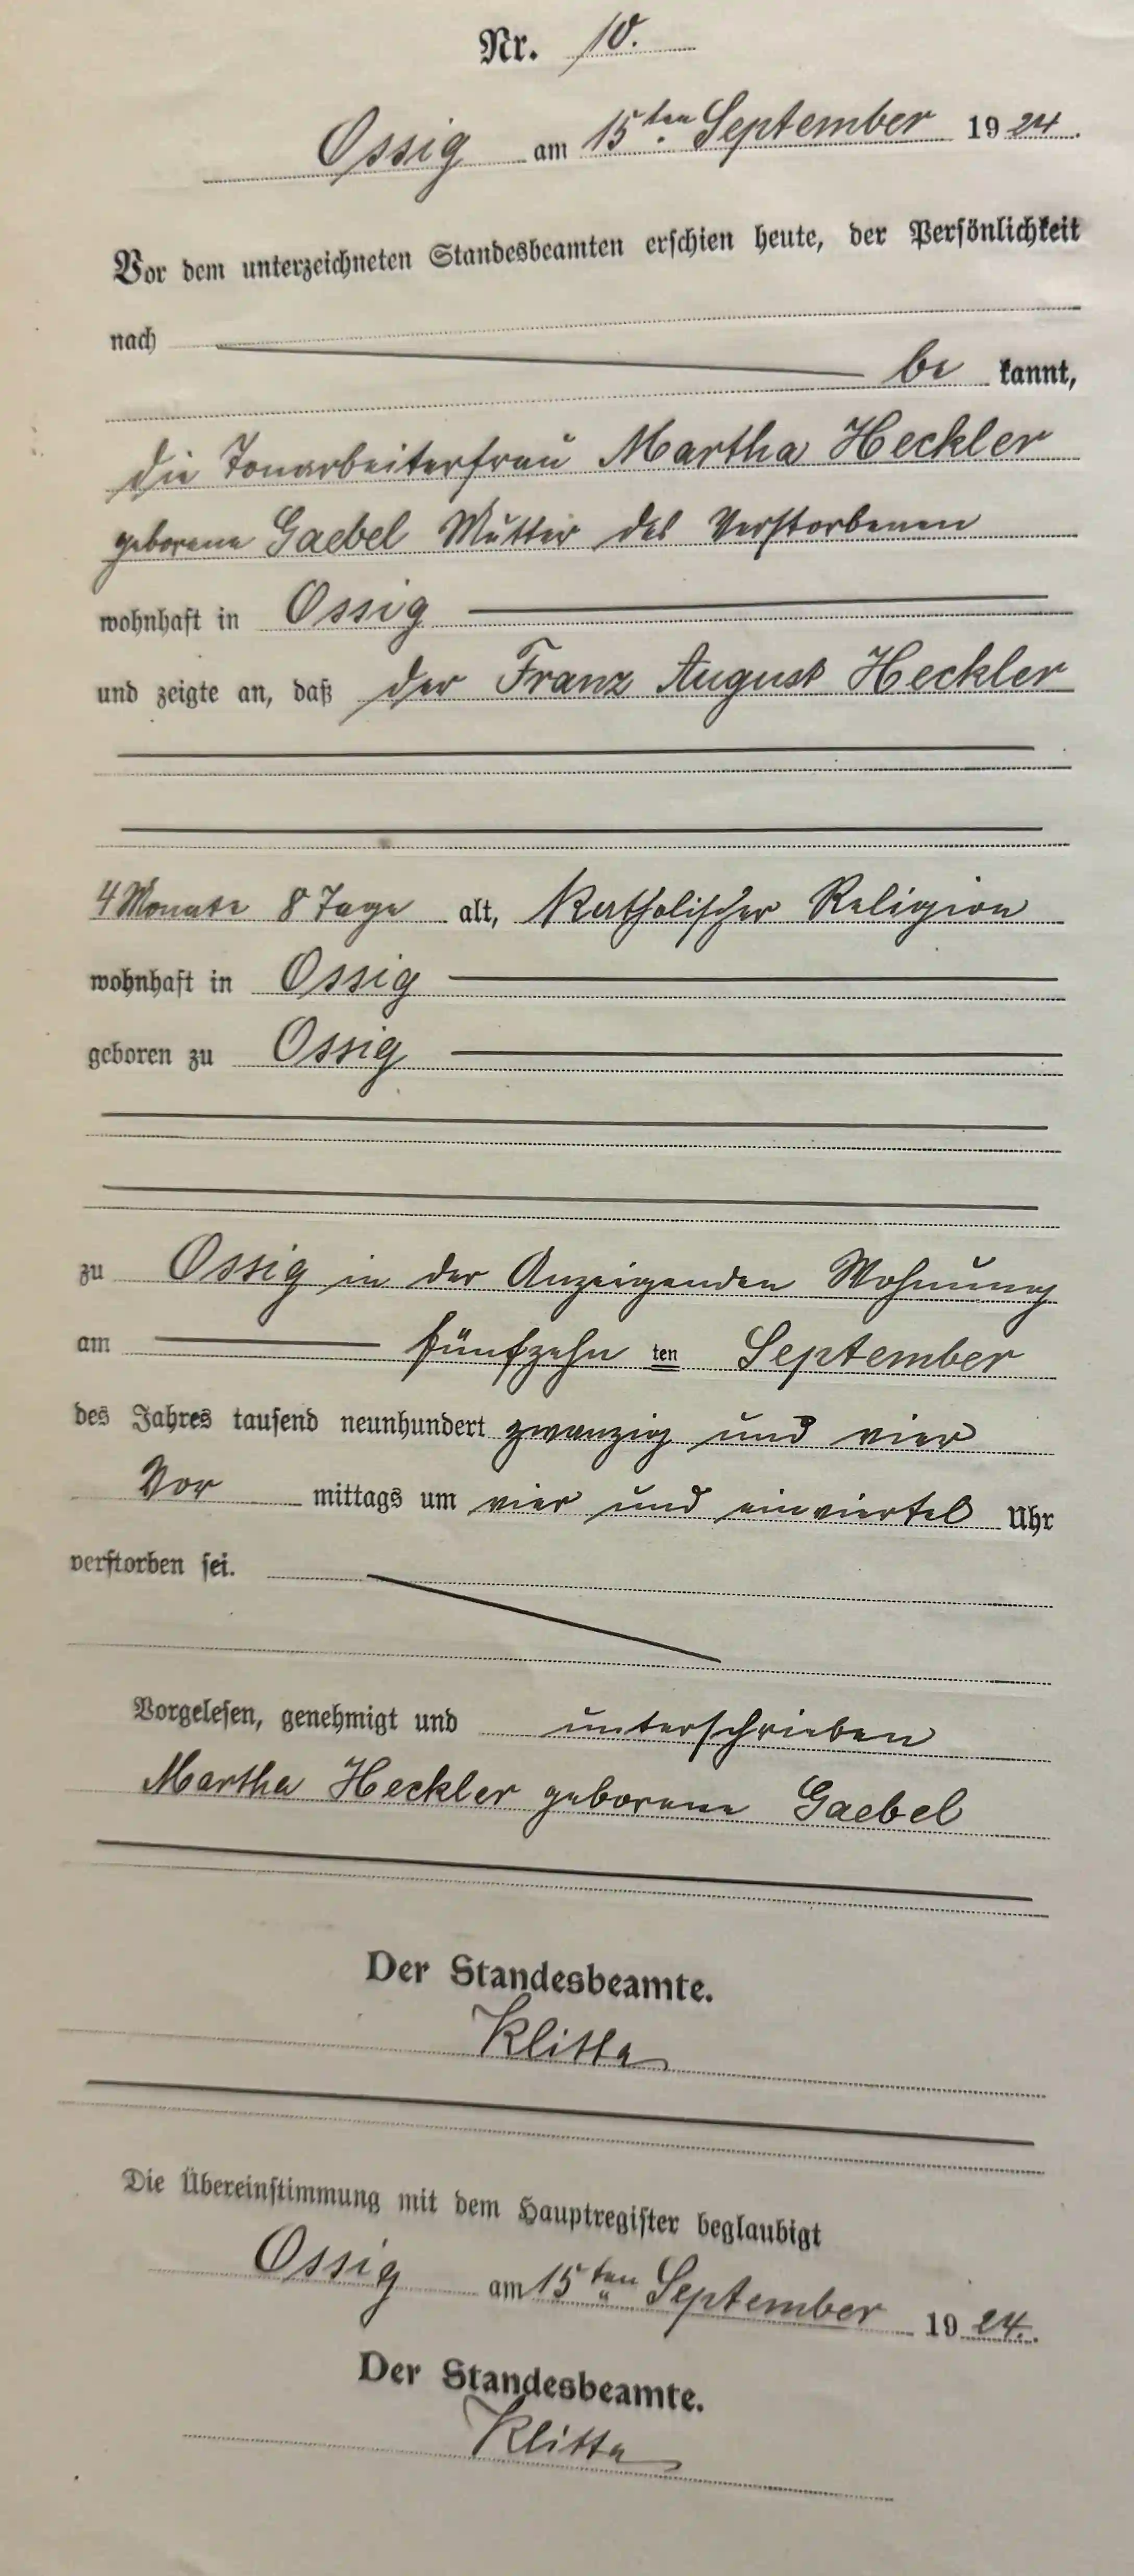 Nr. 10.
Ossig am 15ten September 1924.
Vor dem unterzeichneten Standesbeamten erschien heute, der Persönlichkeit
nach
be kannt,
die Tonarbeiterfrau Martha Heckler
geborene Gaebel Mutter des Verstorbenen
wohnhaft in Ossig
und zeigte an, daß der Franz August Heckler
4 Monate 8 Tage alt, Katholischer Religion
wohnhaft in Ossig
geboren zu Ossig
zu Ossig in der Anzeigenden Wohnung
am fünfzehn ten September
des Jahres tausend neunhundert zwanzig und vier
Vor mittags um vier und einviertel Uhr
verstorben sei.
Vorgelesen, genehmigt und unterschrieben
Martha Heckler geborene Gaebel
Der Standesbeamte.
Klitta
Die Übereinstimmung mit dem Hauptregister beglaubigt
Ossig am 15ten September 1924.
Der Standesbeamte.
Klitta